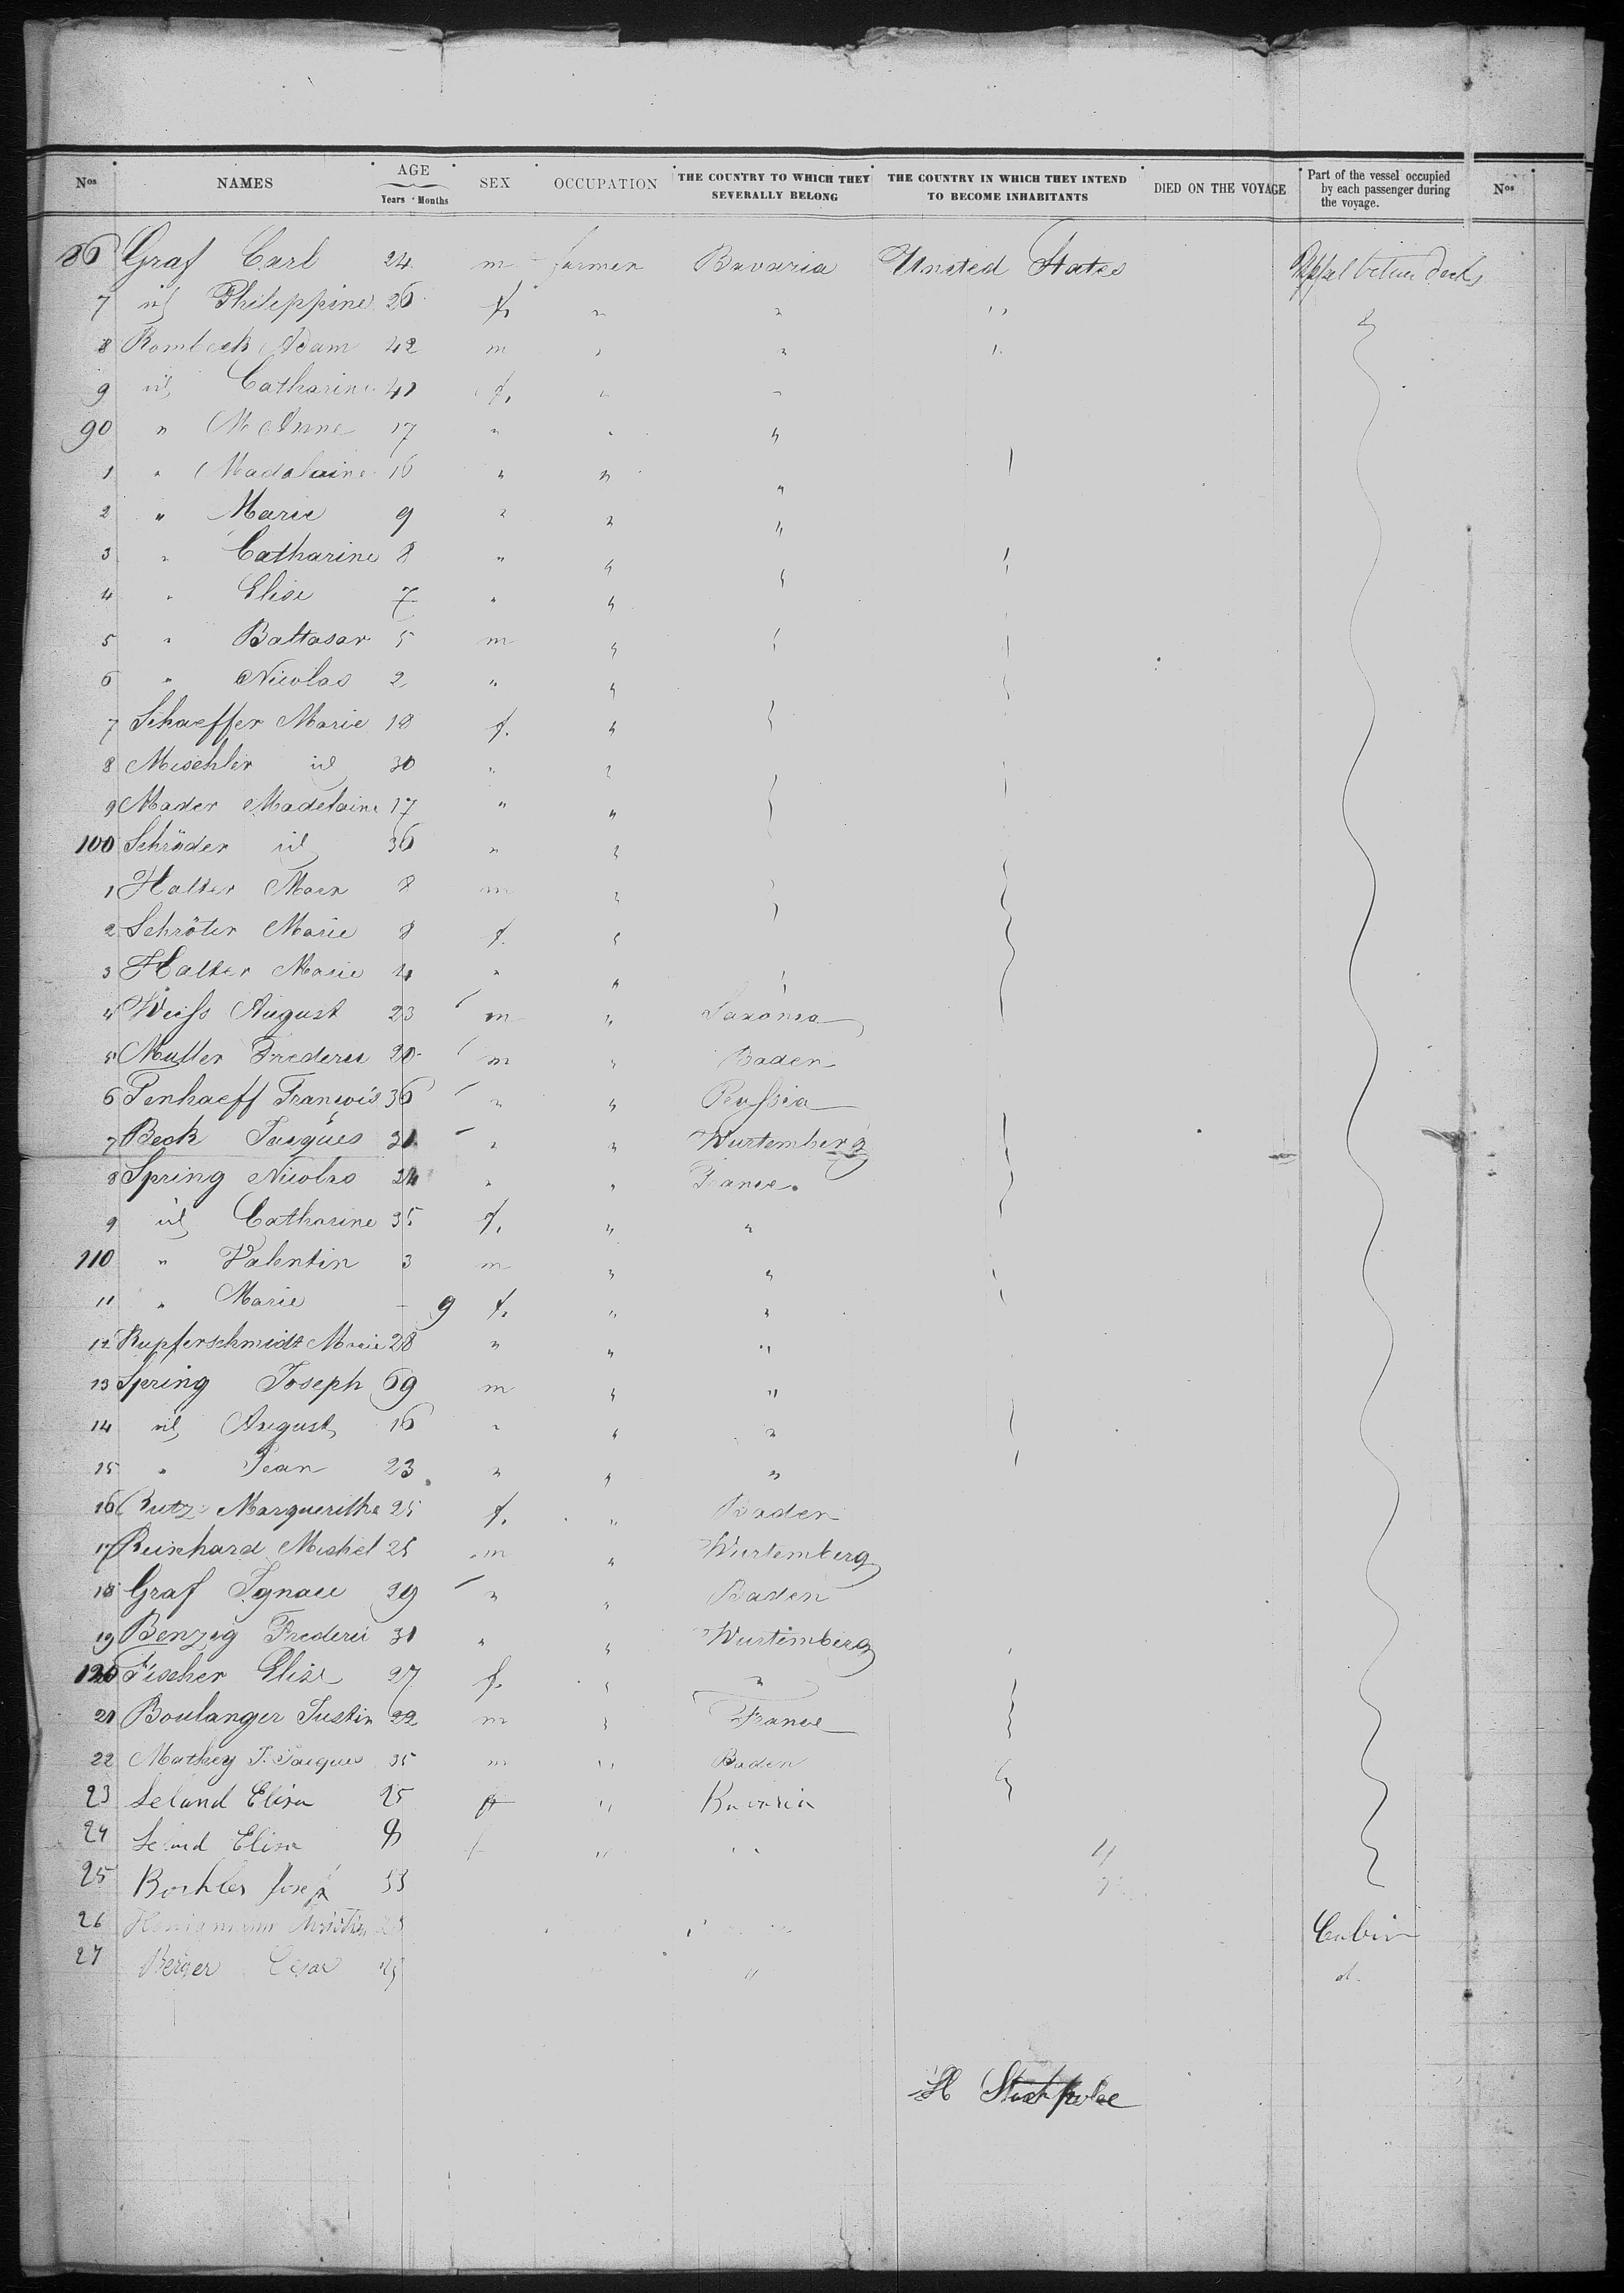 Nos NAMES AGE Years Months SEX OCCUPATION THE COUNTRY TO WHICH THEY SEVERALLY BELONG THE COUNTRY IN WHICH THEY INTEND TO BECOME INHABITANTS DIED ON THE VOYAGE Part of the vessel occupied by each passenger during the voyage. Nos
86 Graf Carl 24 m farmer Bavaria United States decks
7 id Philippine 26 f. " " "
8 Rombach Adam 42 m " " "
9 id Catharine 40 f. " "
90 " M Anne 17 " " "
1 " Madalaine 16 " " "
2 " Marie 9 " " "
3 " Catharine 8 " " "
4 " Elise 7 " "
5 " Baltasar 5 m "
6 " Nicolas 2 " "
7 Schaeffer Marie 18 f. "
8 Mischler id 30 " "
9 Mader Madelaine 17 " "
100 Schröder id 36 " "
1 Halter Marx 8 m "
2 Schröter Marie 8 f. "
3 Halter Marie 4 " "
4 Weiss August 23 m " Saxonia
5 Muller Frederic 20 m " Baden
6 Penhaeff François 36 " " Prussia
7 Beck Jacques 31 " " Wurtemberg
8 Spring Nicolas 24 " " France.
9 id Catharine 35 f. " "
110 " Valentin 3 m " "
11 " Marie - 9 f. " "
12 Kupferschmidt Marie 28 " " "
13 Spring Joseph 69 m " "
14 id August 16 " " "
15 " Jean 23 " " "
16 Butz Marguerithe 25 f. " Baden
17 Reinhard Michel 25 m " Wurtemberg
18 Graf Ignace 29 " " Baden
19 Benzig Frederic 31 " " Wurtemberg
120 Fischer Elise 27 f. " "
21 Boulanger Justin 22 m " France
22 Mathey J. Jacques 35 m " Baden
23 Leland Elisa 25 f " Bavaria
24 Elisa 8 f " "
25 Josep 33
26 Cabin
27 Berger Cesar " d.
H Stackpole